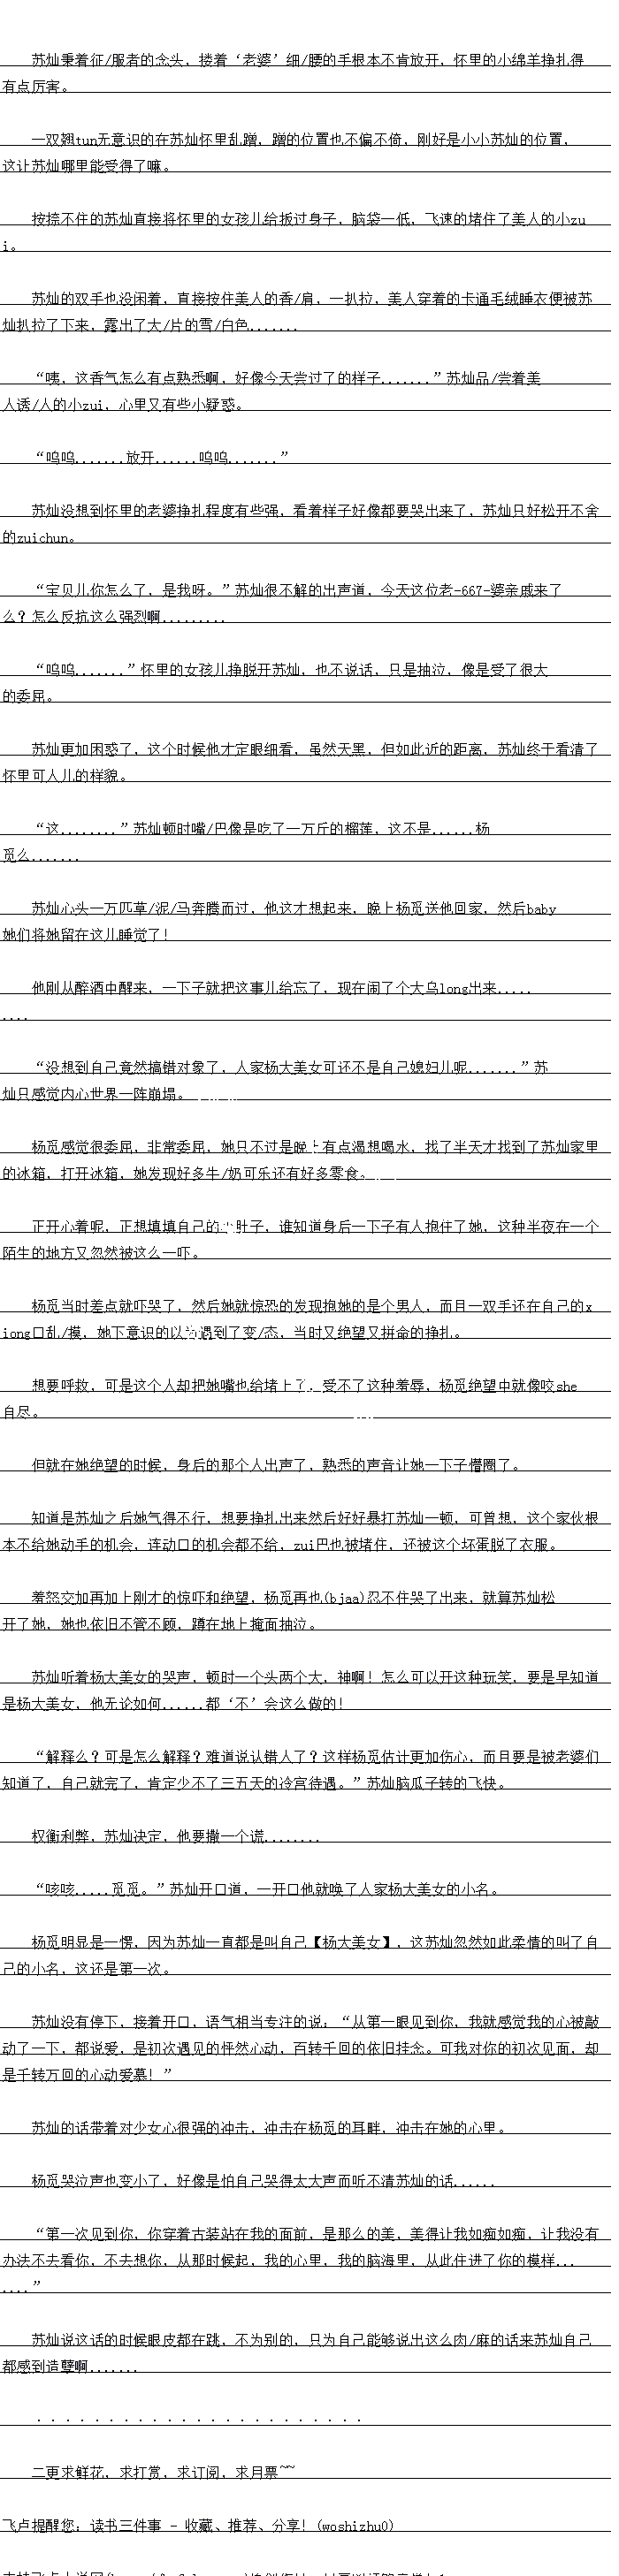 苏灿秉着征/服者的念头，搂着‘老婆’细/腰的手根本不肯放开，怀里的小绵羊挣扎得
有点厉害。
一双翘tun无意识的在苏灿怀里乱蹭，蹭的位置也不偏不倚，刚好是小小苏灿的位置，
这让苏灿哪里能受得了嘛。
按捺不住的苏灿直接将怀里的女孩儿给扳过身子，脑袋一低，飞速的堵住了美人的小zu
i。
苏灿的双手也没闲着，直接按住美人的香/肩，一扒拉，美人穿着的卡通毛绒睡衣便被苏
灿扒拉了下来，露出了大/片的雪/白色.......
“咦，这香气怎么有点熟悉啊，好像今天尝过了的样子.......”苏灿品/尝着美
人诱/人的小zui，心里又有些小疑惑。
“呜呜.......放开......呜呜.......”
苏灿没想到怀里的老婆挣扎程度有些强，看着样子好像都要哭出来了，苏灿只好松开不舍
的zuichun。
“宝贝儿你怎么了，是我呀。”苏灿很不解的出声道，今天这位老-667-婆亲戚来了
么？怎么反抗这么强烈啊.........
“呜呜.......”怀里的女孩儿挣脱开苏灿，也不说话，只是抽泣，像是受了很大
的委屈。
苏灿更加困惑了，这个时候他才定眼细看，虽然天黑，但如此近的距离，苏灿终于看清了
怀里可人儿的样貌。
“这........”苏灿顿时嘴/巴像是吃了一万斤的榴莲，这不是......杨
觅么.......
苏灿心头一万匹草/泥/马奔腾而过，他这才想起来，晚上杨觅送他回家，然后baby
她们将她留在这儿睡觉了！
他刚从醉酒中醒来，一下子就把这事儿给忘了，现在闹了个大乌long出来.....
....
“没想到自己竟然搞错对象了，人家杨大美女可还不是自己媳妇儿呢.......”苏
灿只感觉内心世界一阵崩塌。
杨觅感觉很委屈，非常委屈，她只不过是晚上有点渴想喝水，找了半天才找到了苏灿家里
的冰箱，打开冰箱，她发现好多牛/奶可乐还有好多零食。
正开心着呢，正想填填自己的小肚子，谁知道身后一下子有人抱住了她，这种半夜在一个
陌生的地方又忽然被这么一吓。
杨觅当时差点就吓哭了，然后她就惊恐的发现抱她的是个男人，而且一双手还在自己的x
iong口乱/摸，她下意识的以为遇到了变/态，当时又绝望又拼命的挣扎。
想要呼救，可是这个人却把她嘴也给堵上了，受不了这种羞辱，杨觅绝望中就像咬she
自尽。
但就在她绝望的时候，身后的那个人出声了，熟悉的声音让她一下子懵圈了。
知道是苏灿之后她气得不行，想要挣扎出来然后好好暴打苏灿一顿，可曾想，这个家伙根
本不给她动手的机会，连动口的机会都不给，zui巴也被堵住，还被这个坏蛋脱了衣服。
羞怒交加再加上刚才的惊吓和绝望，杨觅再也(bjaa)忍不住哭了出来，就算苏灿松
开了她，她也依旧不管不顾，蹲在地上掩面抽泣。
苏灿听着杨大美女的哭声，顿时一个头两个大，神啊！怎么可以开这种玩笑，要是早知道
是杨大美女，他无论如何......都‘不’会这么做的！
“解释么？可是怎么解释？难道说认错人了？这样杨觅估计更加伤心，而且要是被老婆们
知道了，自己就完了，肯定少不了三五天的冷宫待遇。”苏灿脑瓜子转的飞快。
权衡利弊，苏灿决定，他要撒一个谎........
“咳咳.....觅觅。”苏灿开口道，一开口他就唤了人家杨大美女的小名。
杨觅明显是一愣，因为苏灿一直都是叫自己【杨大美女】，这苏灿忽然如此柔情的叫了自
己的小名，这还是第一次。
苏灿没有停下，接着开口，语气相当专注的说：“从第一眼见到你，我就感觉我的心被敲
动了一下，都说爱，是初次遇见的怦然心动，百转千回的依旧挂念。可我对你的初次见面，却
是千转万回的心动爱慕！”
苏灿的话带着对少女心很强的冲击，冲击在杨觅的耳畔，冲击在她的心里。
杨觅哭泣声也变小了，好像是怕自己哭得太大声而听不清苏灿的话......
“第一次见到你，你穿着古装站在我的面前，是那么的美，美得让我如痴如痴，让我没有
办法不去看你，不去想你，从那时候起，我的心里，我的脑海里，从此住进了你的模样...
....”
苏灿说这话的时候眼皮都在跳，不为别的，只为自己能够说出这么肉/麻的话来苏灿自己
都感到造孽啊.......
·······················
二更求鲜花，求打赏，求订阅，求月票~~
飞卢提醒您：读书三件事 - 收藏、推荐、分享！(woshizhu0)